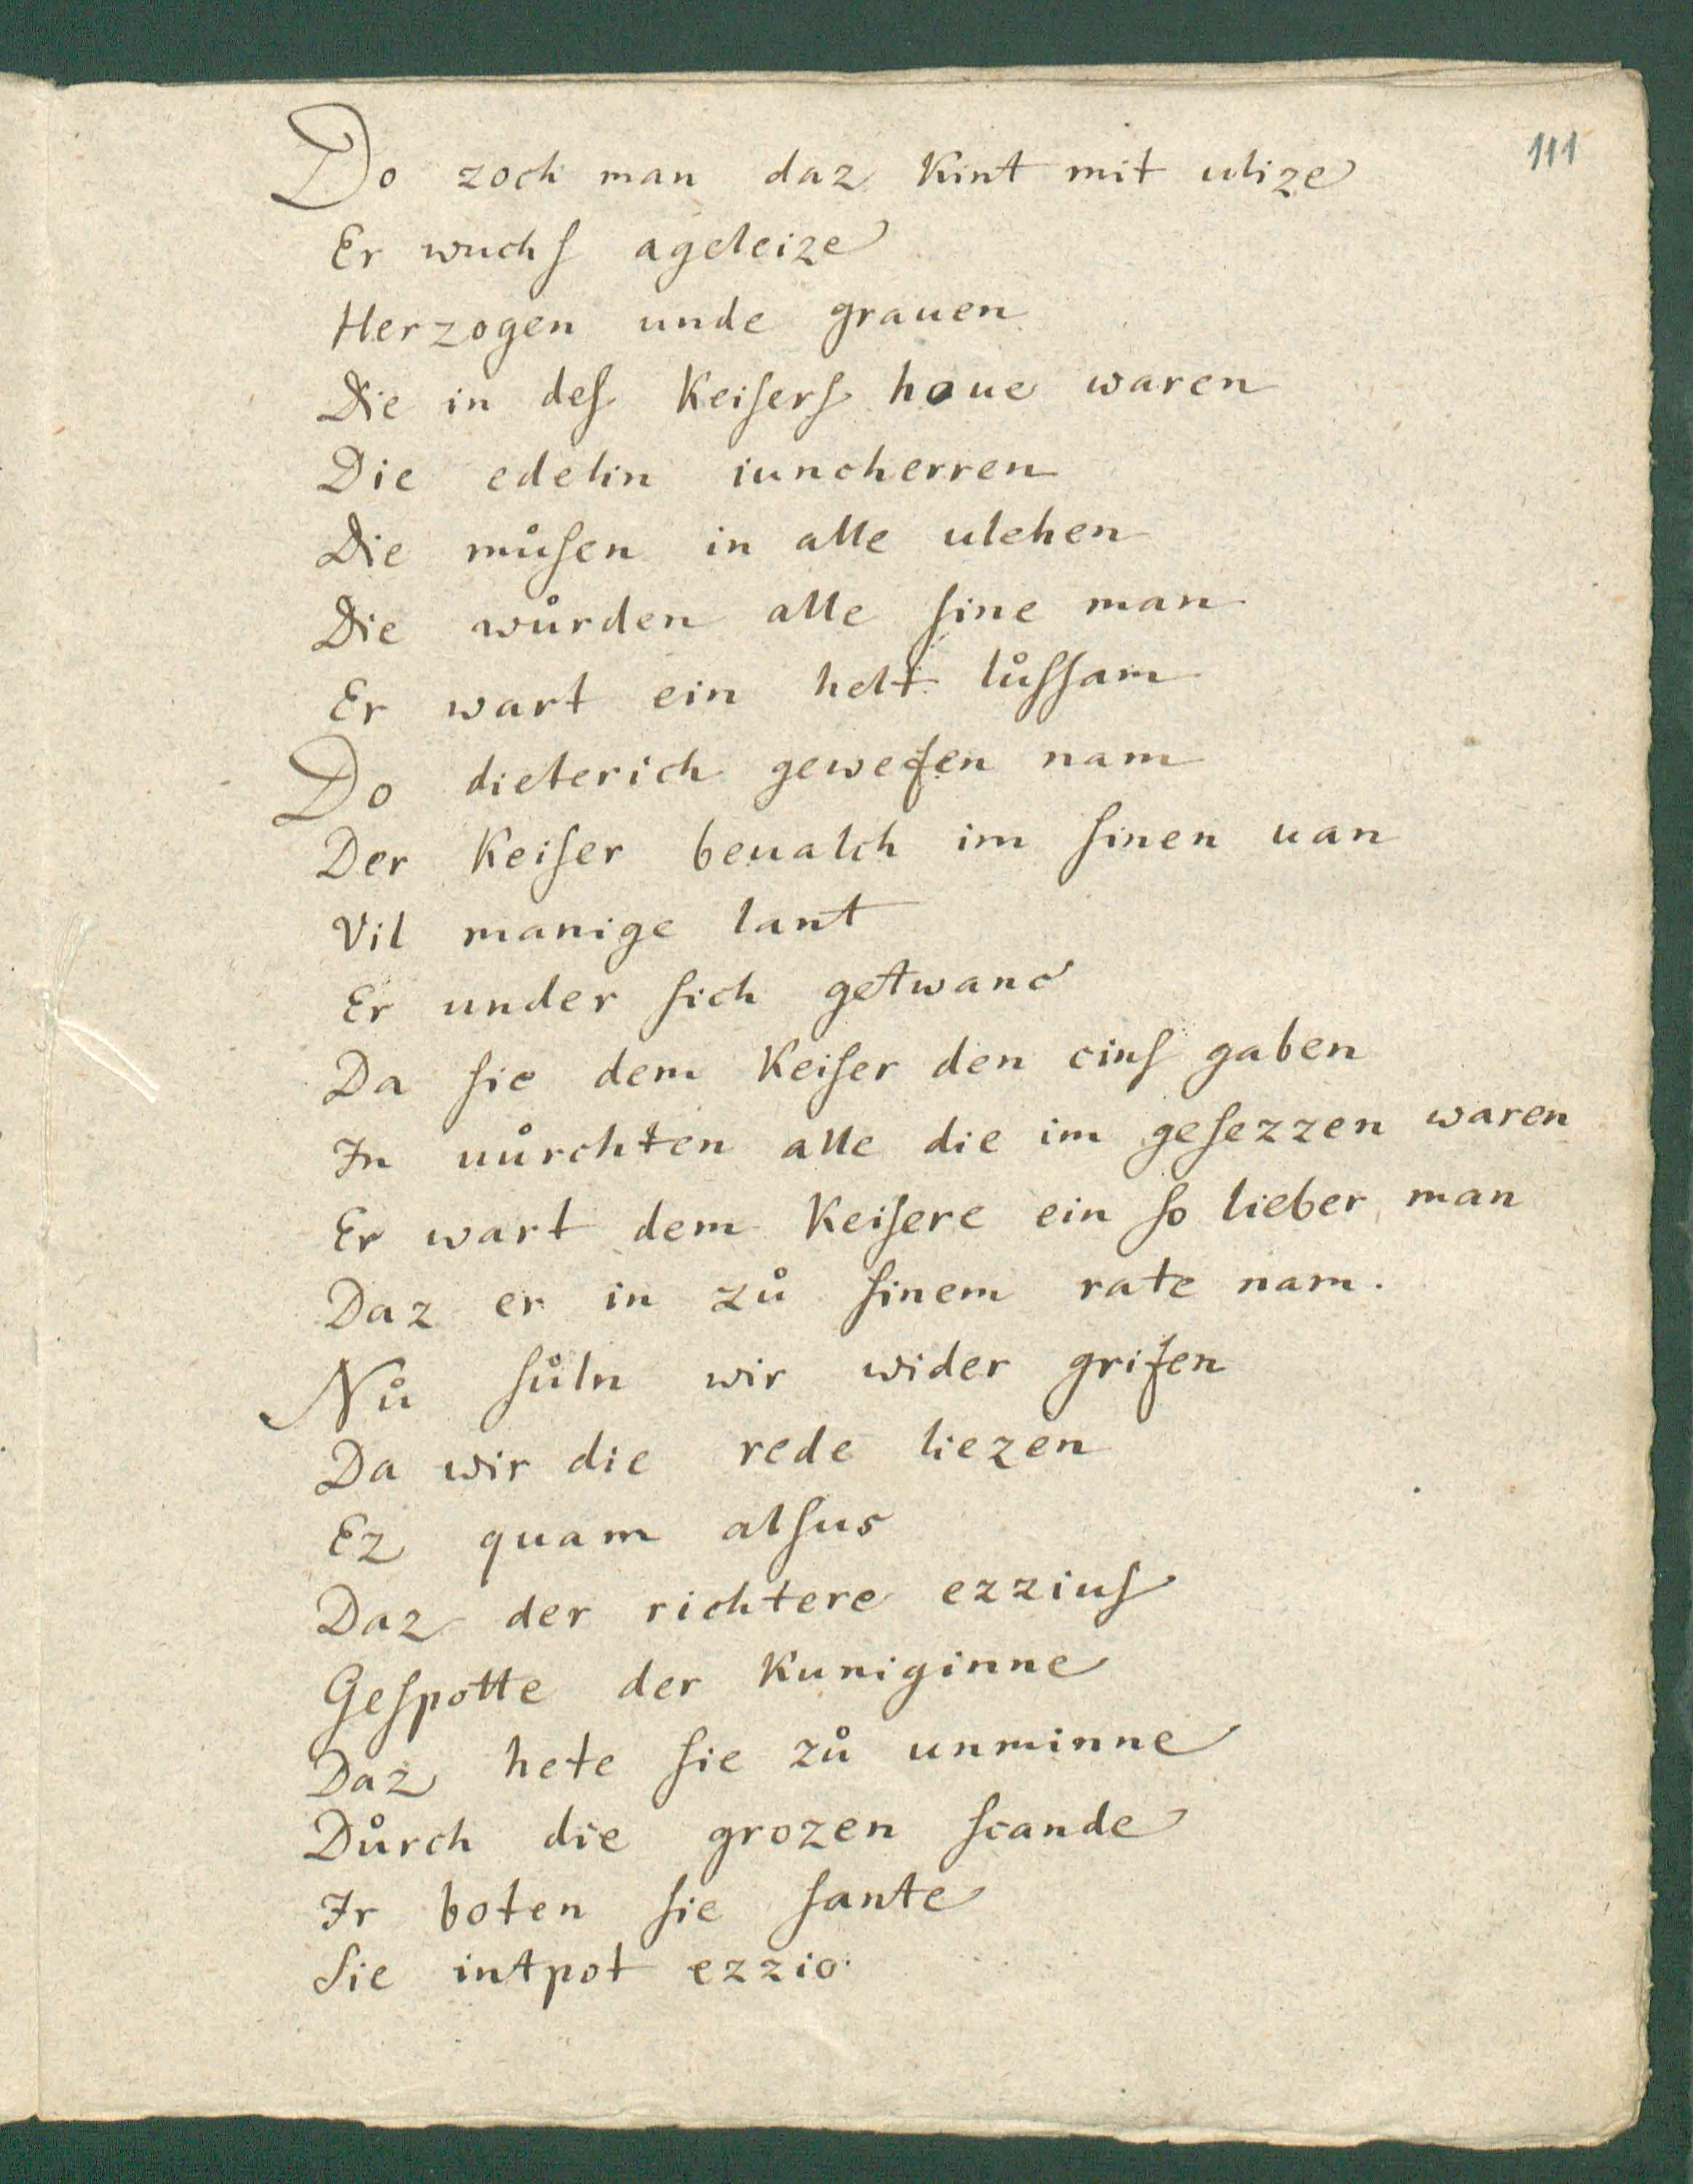 111
Do zoch man daz kint mit ulize
Er wuchſ ageleize
Herzogen unde grauen
Die in deſ keiſerſ houe waren
Die edelin iuncherren
Die muͦſen in alle ulehen
Die wuͦrden alle ſine man
Er wart ein helt luͦſſam
Do dieterich geweſen nam
Der keiſer beualch im ſinen uan
Vil manige lant
Er under ſich getwanc
Da ſie dem keiſer den cinſ gaben
In uuͦrchten alle die im geſezzen waren
Er wart dem keiſere ein ſo lieber man
Daz er in zuͦ ſinem rate nam.
Nuͦ ſuͦln wir wider grifen
Da wir die rede liezen
Ez quam alſus
Daz der richtere ezziuſ
Geſpotte der kuniginne
Daz hete ſie zuͦ unminne
Duͦrch die grozen ſcande
Ir boten ſie ſante
Sie intpot ezzio